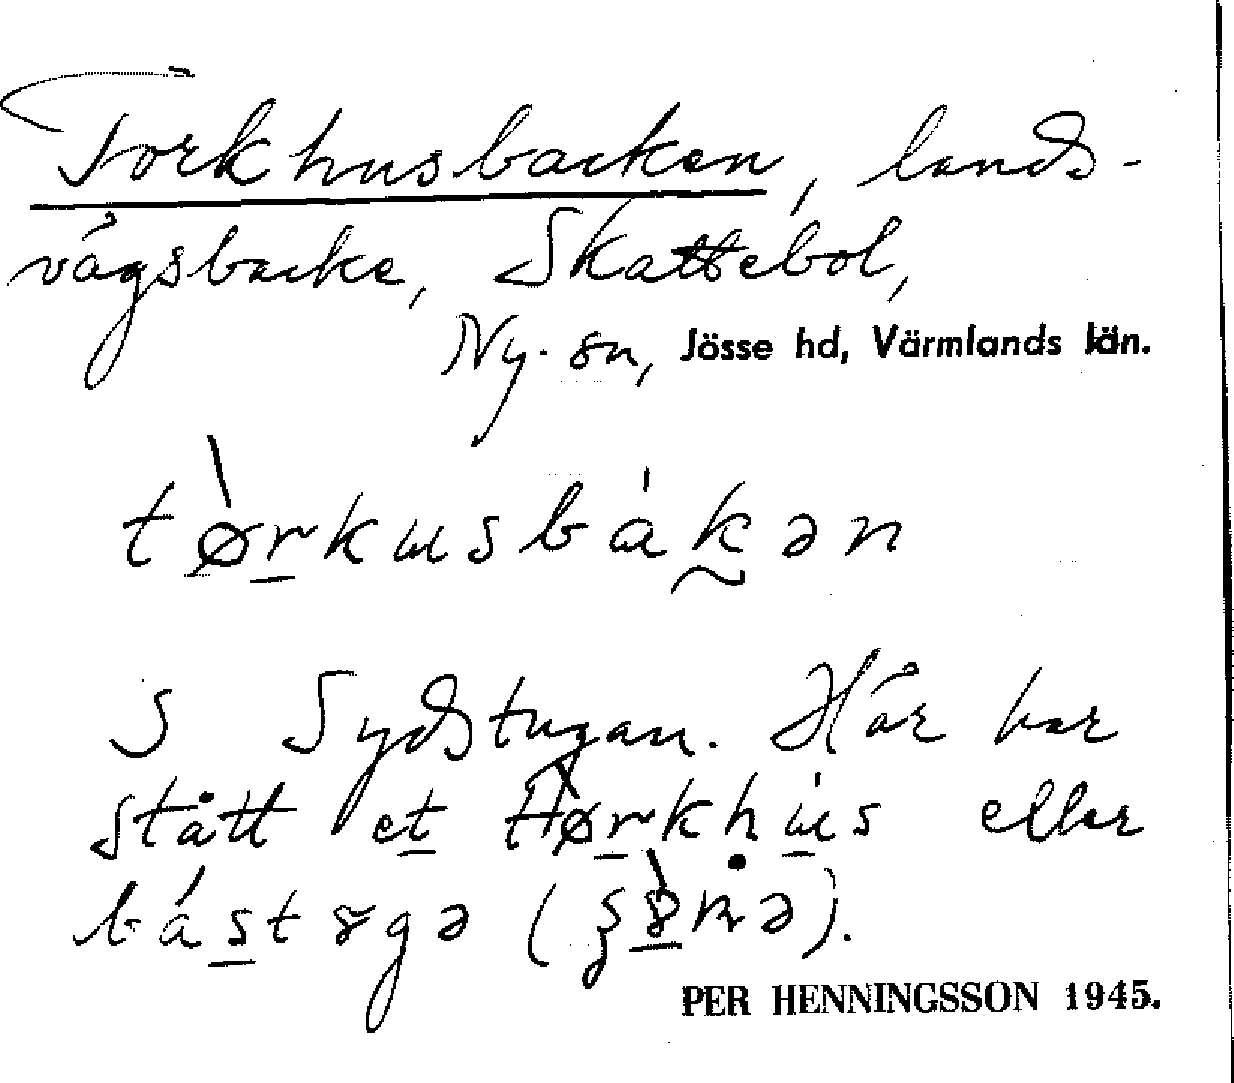 Torkhusbacken, lands-
vägsbacke, Skattebol,
Ny. sn, Jösse hd, Värmlands län.
tørkusbakən
S Sydstugan. Här har
stått et tørkhus eller
bástꝸgə
PER HENNINGSSON 1945.